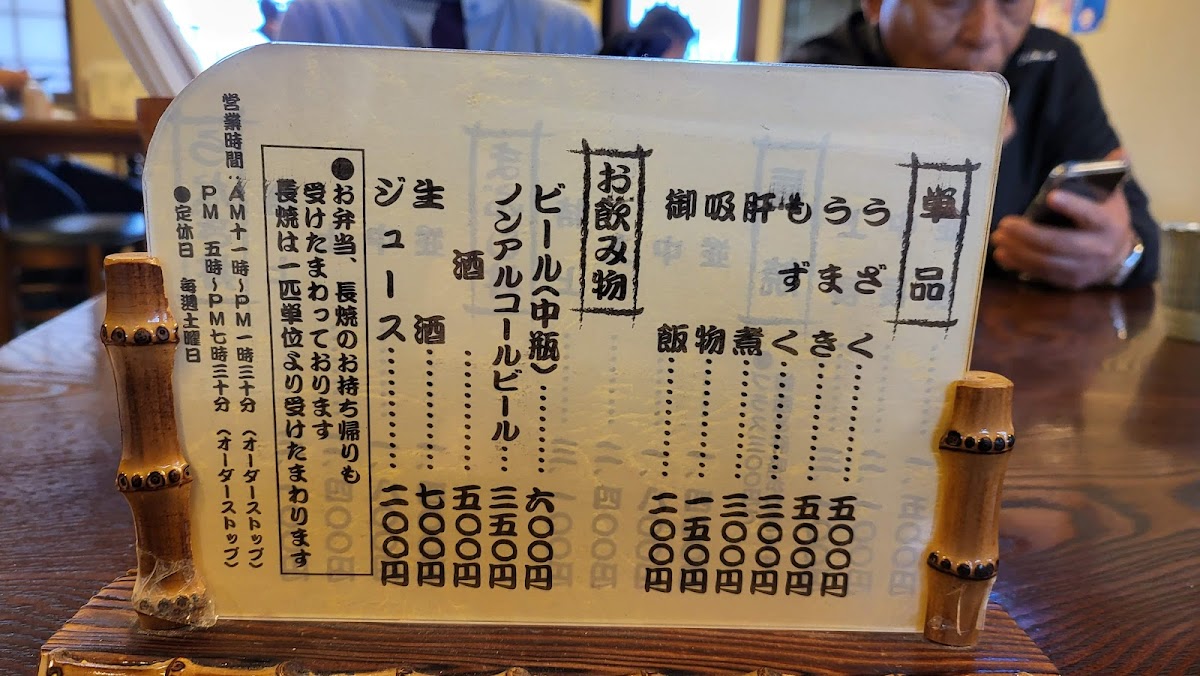 単品
うざく…………五〇〇円
うまき…………五〇〇円
もずく…………三〇〇円
肝煮…………三〇〇円
吸物…………一五〇円
御飯…………二〇〇円
お飲み物
ビール(中瓶)………六〇〇円
ノンアルコールビール…三五〇円
酒…………五〇〇円
生酒…………七〇〇円
ジュース…………二〇〇円
●お弁当、長焼のお持ち帰りも
受けたまわっております
長焼は一匹単位より受けたまわります
営業時間:AM十一時〜PM一時三十分(オーダーストップ)
PM五時〜PM七時三十分(オーダーストップ)
●定休日 毎週土曜日